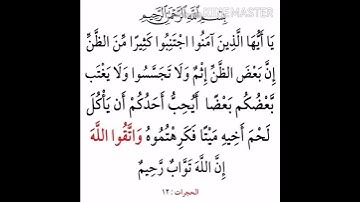 بِسْمِ اللَّهِ الرَّحْمَنِ الرَّحِيمِ
يَا أَيُّهَا الَّذِينَ آمَنُوا اجْتَنِبُوا كَثِيرًا مِّنَ الظَّنِّ
إِنَّ بَعْضَ الظَّنِّ إِثْمٌ وَلَا تَجَسَّسُوا وَلَا يَغْتَب
بَّعْضُكُم بَعْضًا أَيُحِبُّ أَحَدُكُمْ أَن يَأْكُلَ
لَحْمَ أَخِيهِ مَيْتًا فَكَرِهْتُمُوهُ وَاتَّقُوا اللَّهَ
إِنَّ اللَّهَ تَوَّابٌ رَّحِيمٌ
الحجرات : ١٢